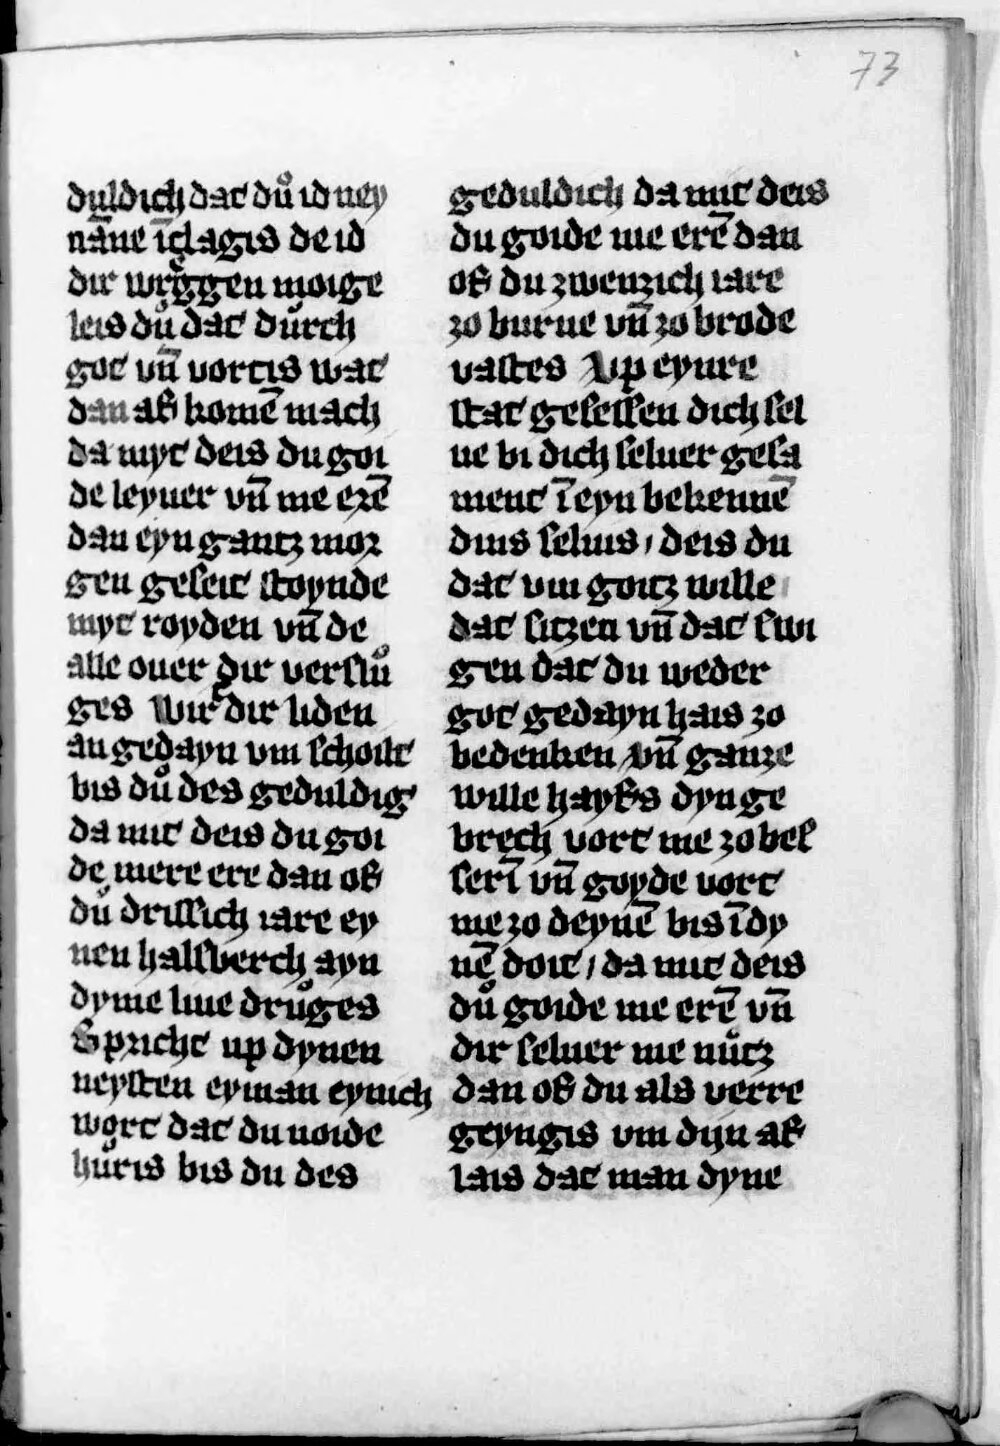 73
duldich dat dů id ney
nāne īclagis de id
dir wrůggen moige
leis dů dat důrch
got vn̄ vortis wat
dan af komē mach
da myt deis du goi
de leyuer vn̄ me erē
dan eyn gantz mor
gen geseit stoynde
myt royden vn̄ de
alle ouer dir verslů
ges Wir dir liden
an gedayn vm schoilt
bis dů des geduldig
da mit deis du goi
de mere ere dan of
dů drissich iare ey
nen halsberch ayn
dyme liue drůges
Spricht up dynen
neysten eyman eynich
wort dat du noide
hůris bis du des
geduldich da mit deis
du goide me erē dan
of du zwenzich iare
zo burne vn̄ zo brode
vastes Vp eynre
stat gesessen dich sel
ue bi dich seluer gesa
ment ī eyn bekennē
dins seluis / deis du
dat vm goitz wille
dat sitzen vn̄ dat swi
gen dat du weder
got gedayn hais zo
bedenken vn̄ ganze
wille hayfs dyn ge
brech vort me zo bes
serī vn̄ goyde vort
me zo deynē bis ī dy
nē doit / da mit deis
dů goide me erē vn̄
dir seluer me nůtz
dan of du als verre
geyngis vm dijn af
lais dat man dyne